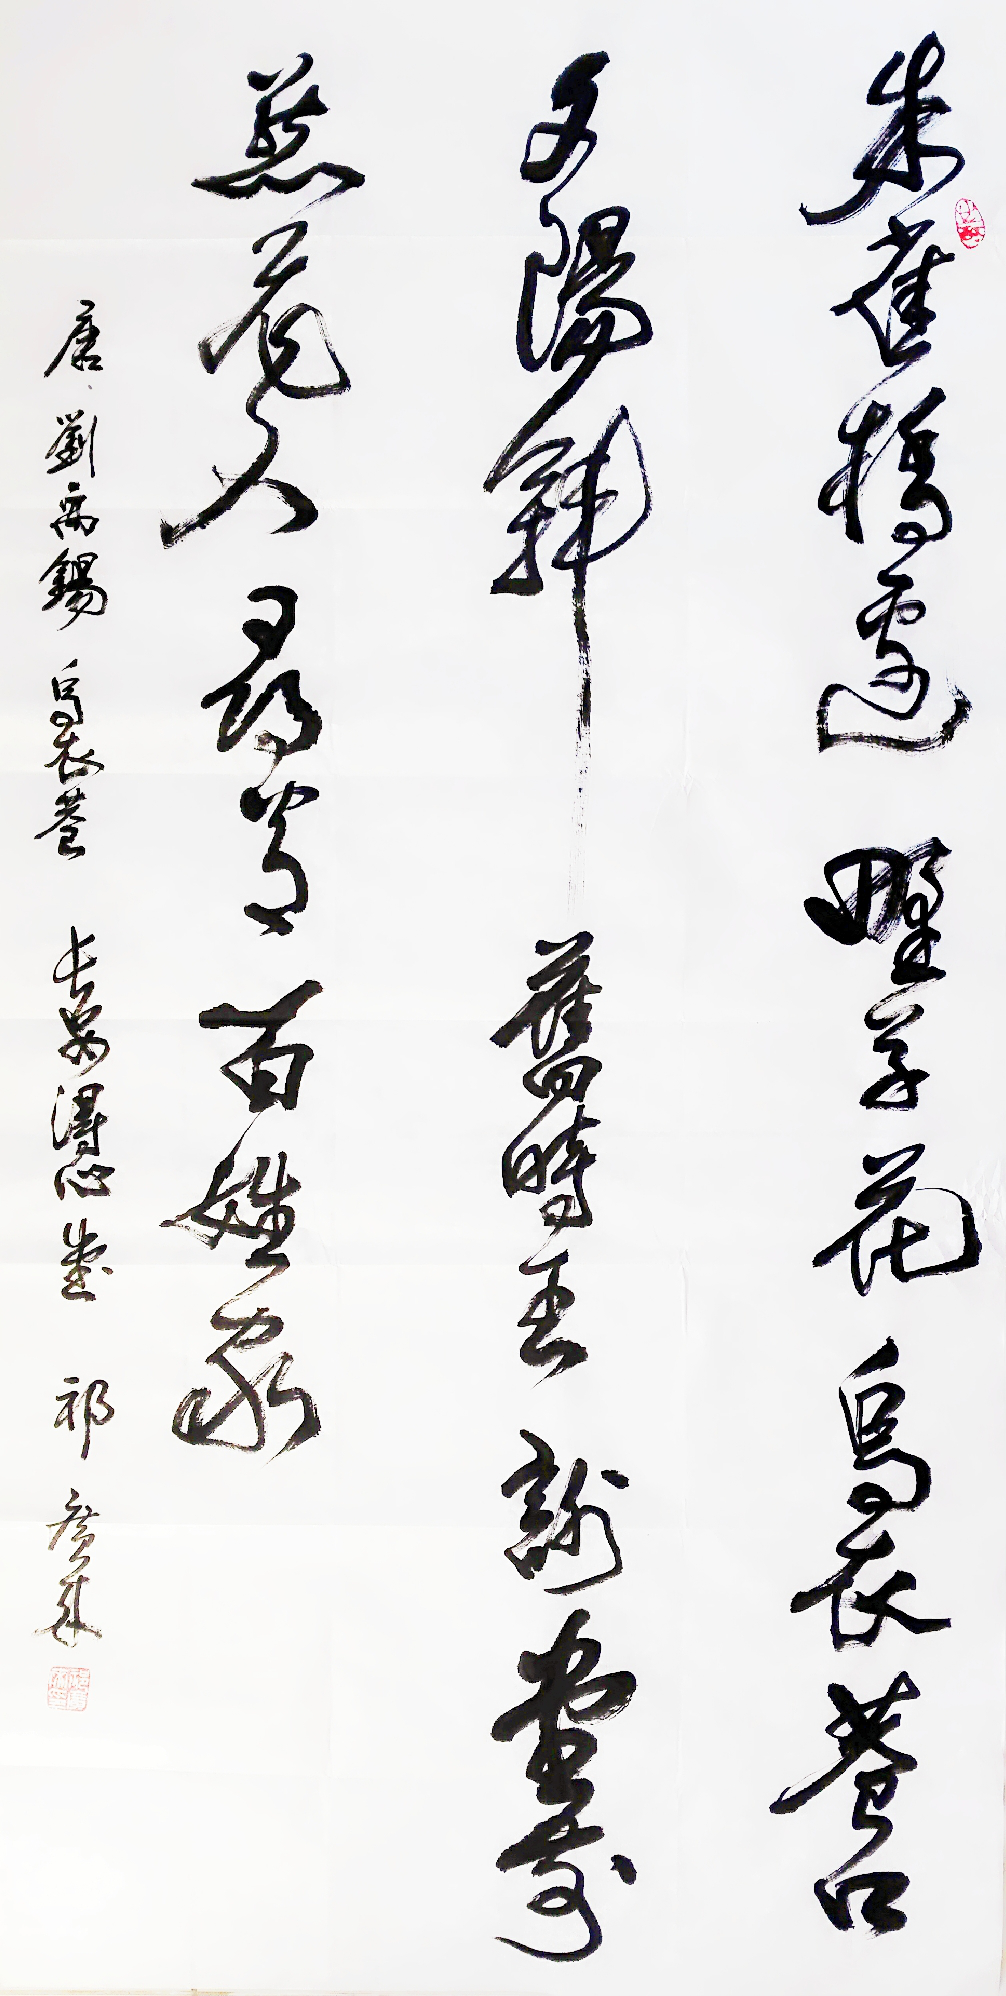 朱雀橋邊 野草花 烏衣巷口
夕陽斜 舊時王謝堂前
燕飛入尋常百姓家
唐 劉禹錫 烏衣巷 长安得心堂 祁廣